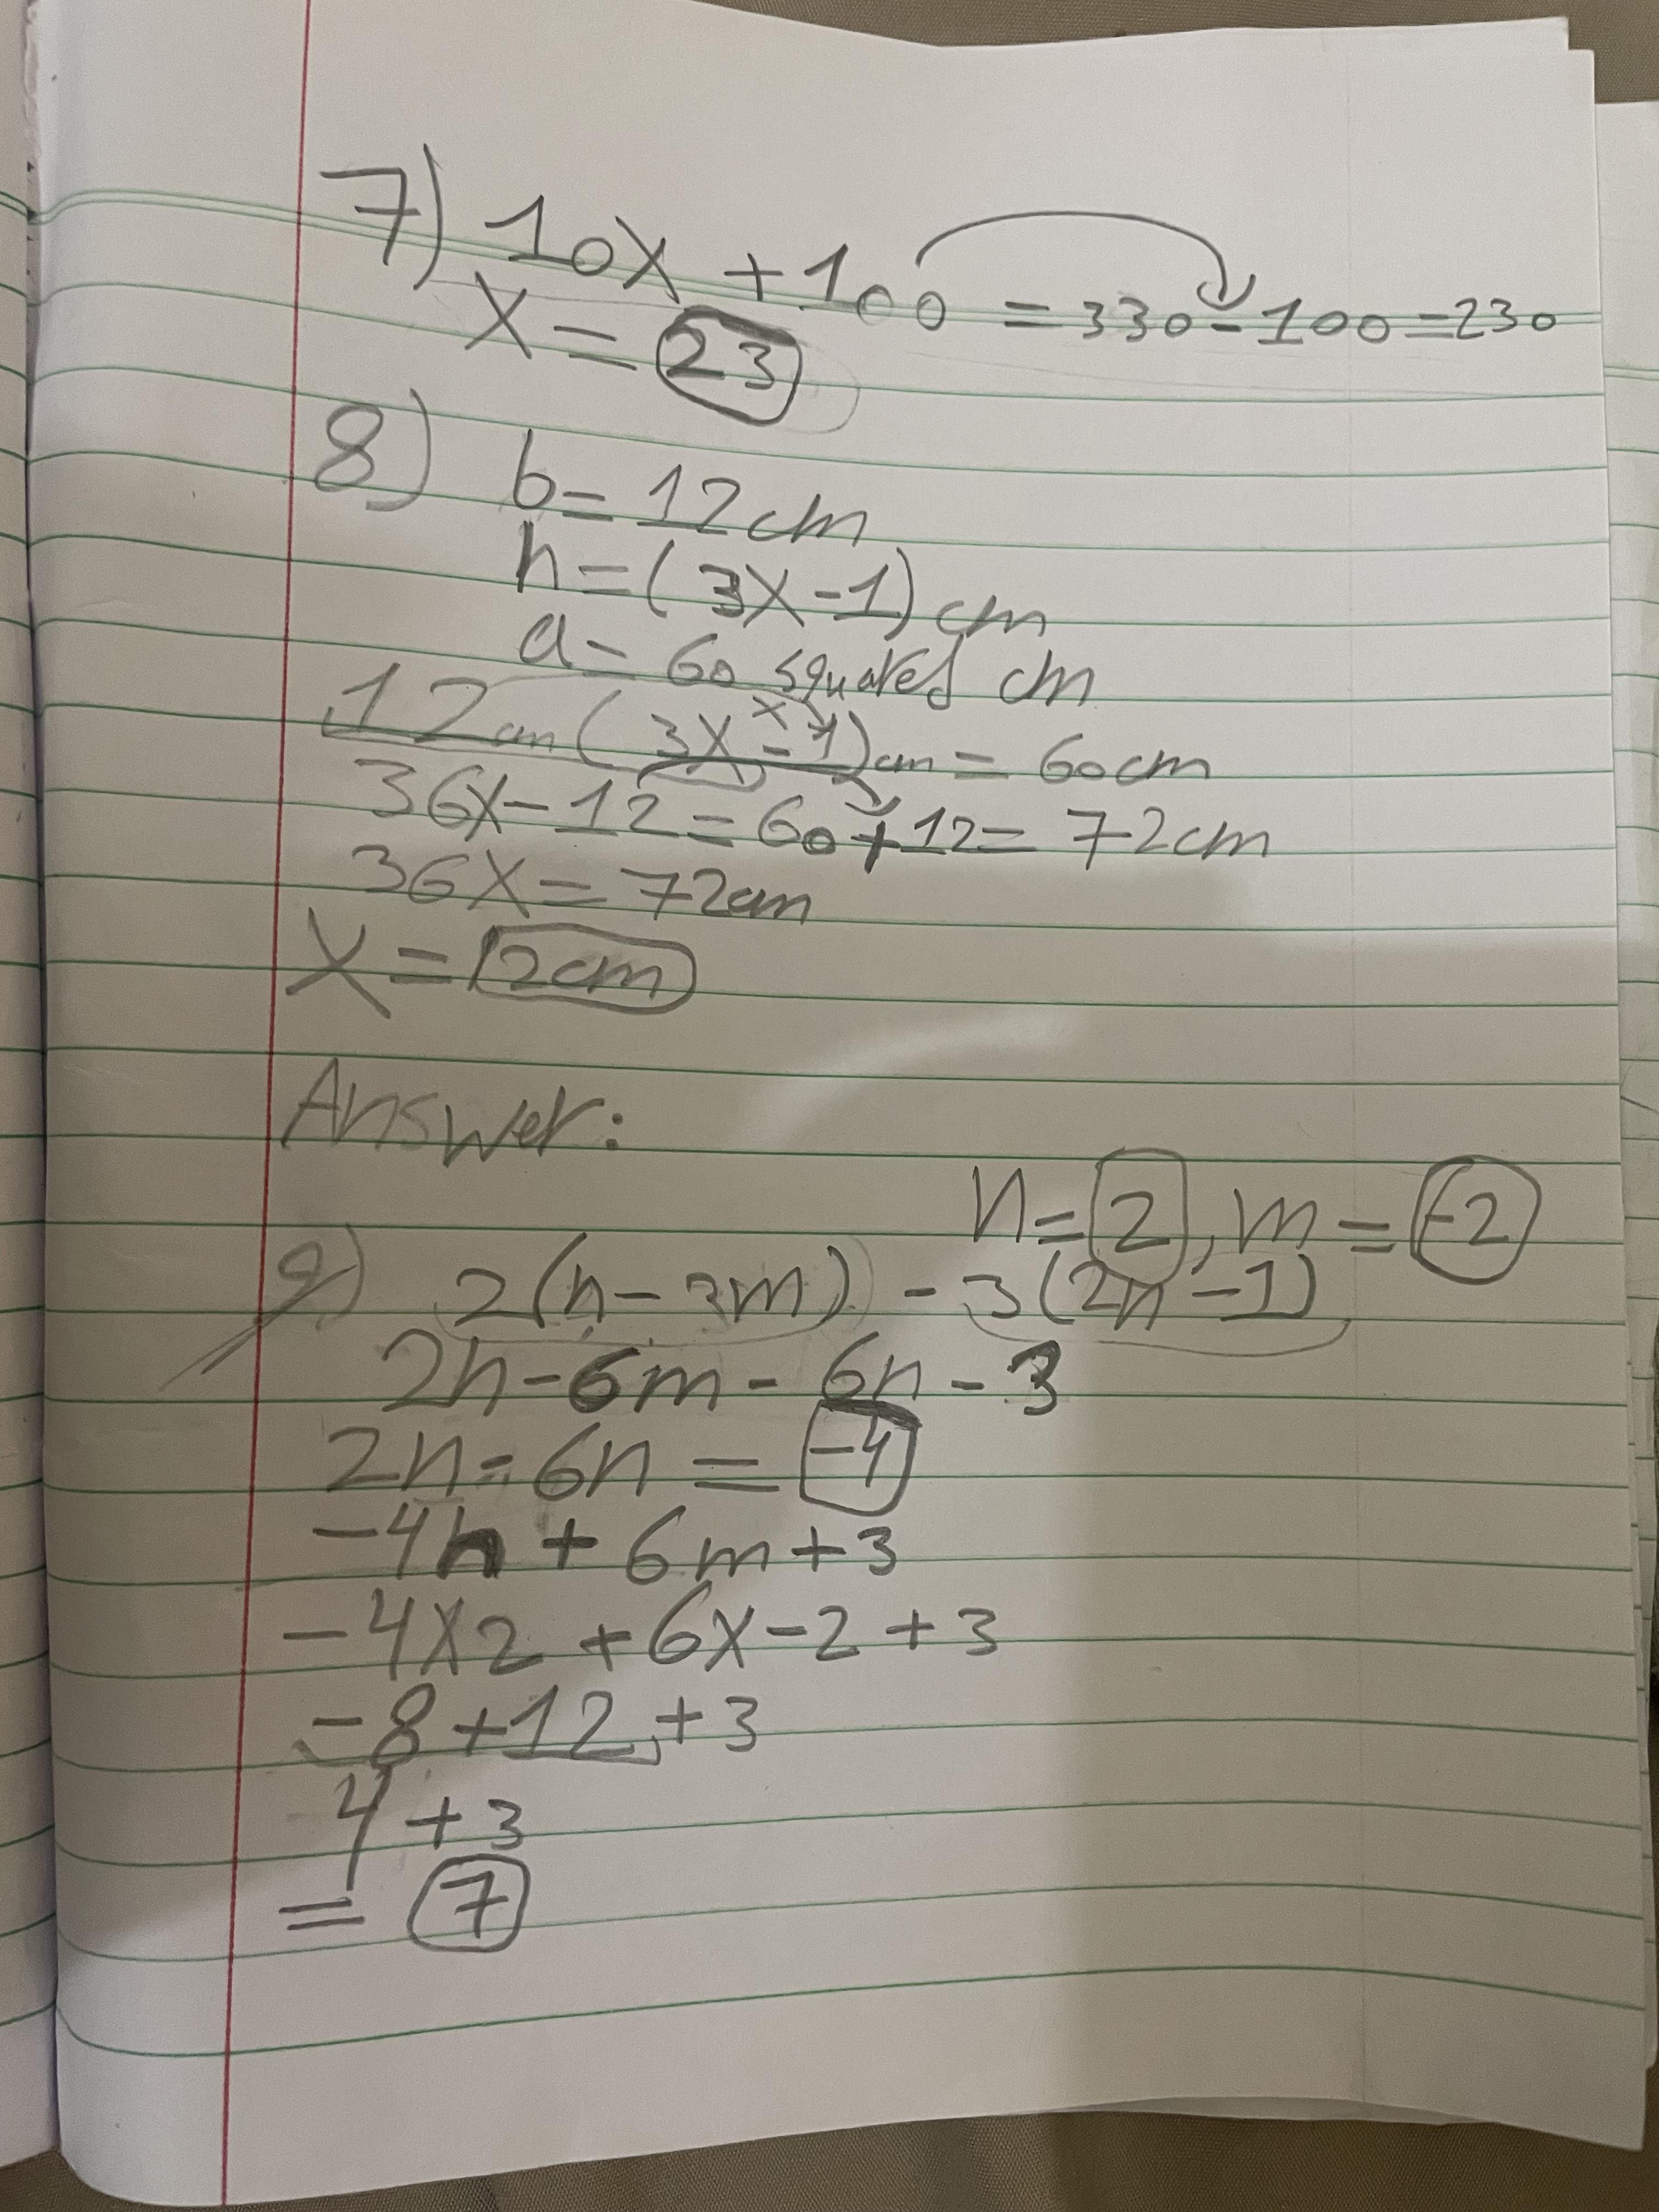 7) 10x + 100 = 330 - 100 = 230
x = 23
8) b = 12cm
h = (3x - 1) cm
a = 60 squared cm
12cm (3x - 1)cm = 60cm
36x - 12 = 60 + 12 = 72cm
36x = 72cm
x = 2cm
Answer:
n = 2, m = -2
9) 2(n - 3m) - 3(2n - 1)
2n - 6m - 6n - 3
2n - 6n = -4
-4n + 6m + 3
-4x2 + 6x-2 + 3
-8 + 12 + 3
4 + 3
= 7